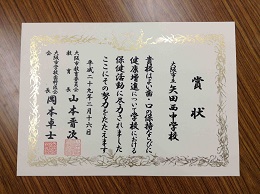 賞状
大阪市立
矢田西中学校
貴校はよい歯・口の保持ならびに
健康増進について学校における
保健活動に尽力されました
ここにその努力をたたえます
平成二十九年二月十六日
大阪市教育委員会
教育長 山本晋次
大阪市学校歯科医会
会長 岡本卓士